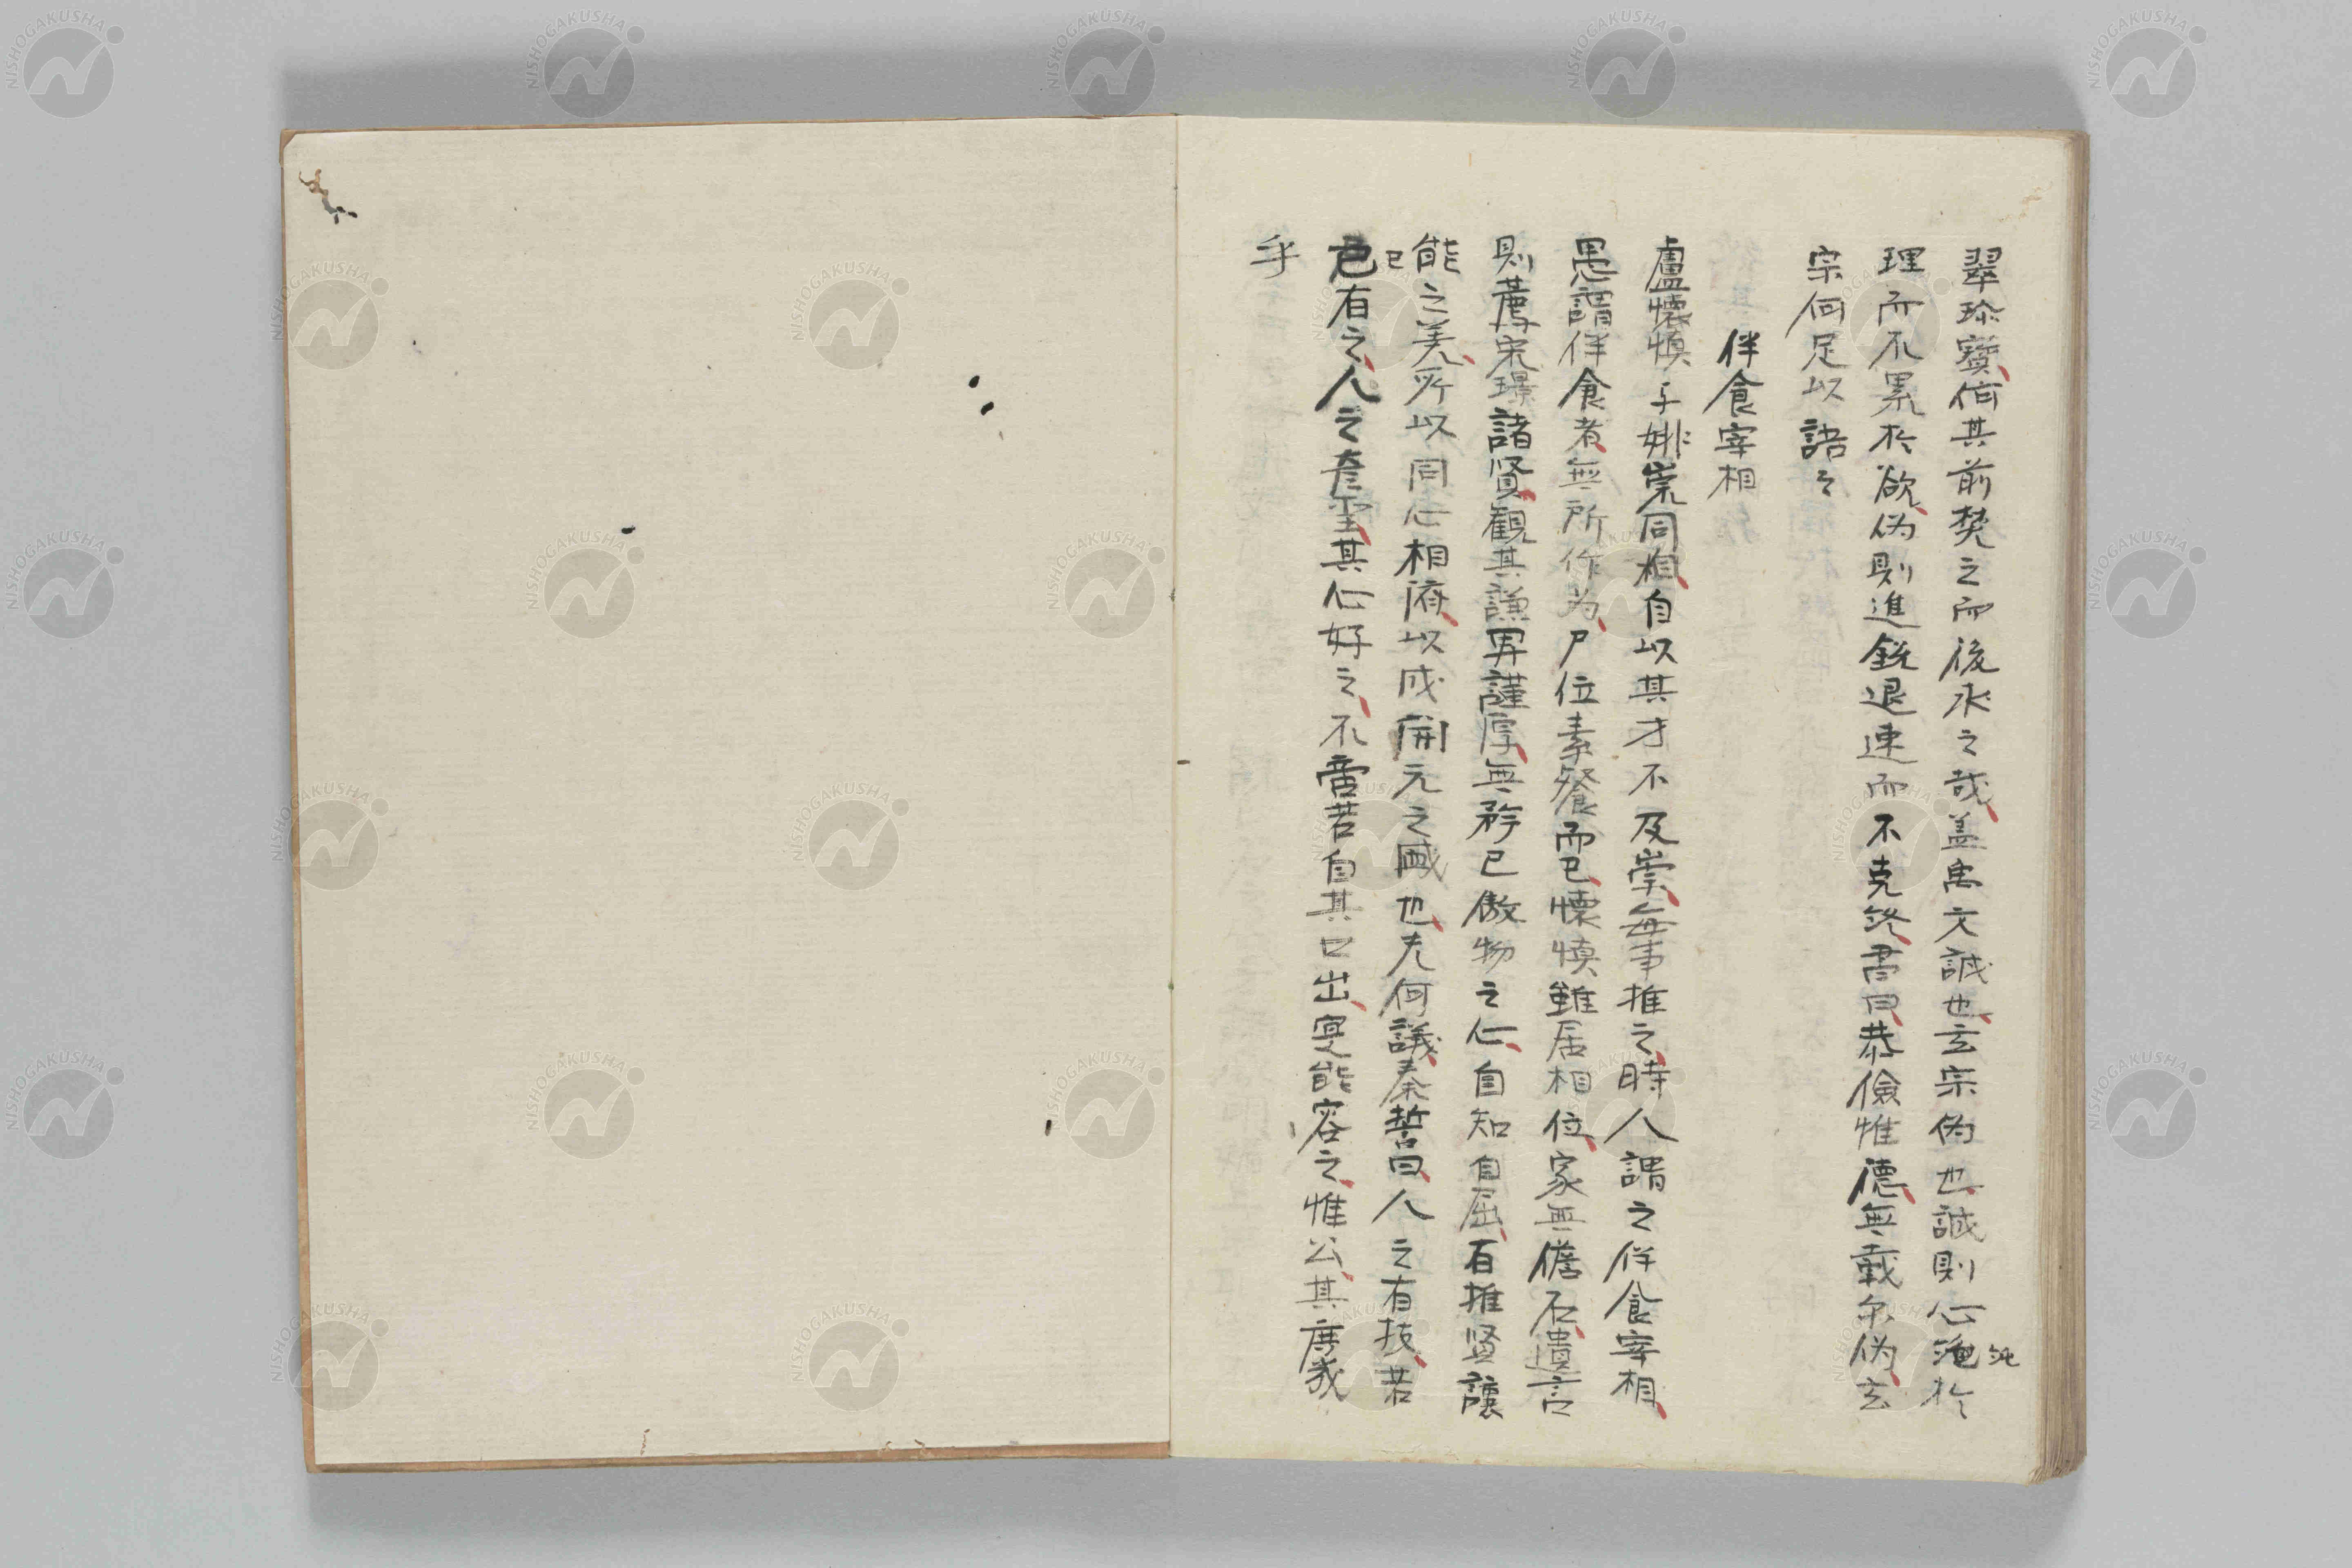 翠珍寳侑其前焚之而後求之哉盖禹文誠也玄宗偽也誠則心滝於
純
理而不累於欲偽則進鋭退速而不克終書曰恭儉惟德無載尓偽玄
宗何足以語之
伴食宰相
盧懐慎与姚崇同相自以其才不及崇毎事推之時人謂之伴食宰相
愚謂伴食者無所作為尸位素餐而已懐慎雖居相位家無儋石遺言
則薦宋璟諸賢観其謙畀謹厚無矜已傲物之心自知自屈百推賢譲
能之美所以同心相府以成開元之盛也尤何議秦誓曰人之有技若
己
己有之人之彦聖其心好之不啻若自其口出寔能容之惟公其庶幾
乎
NISHOGAKUSHA